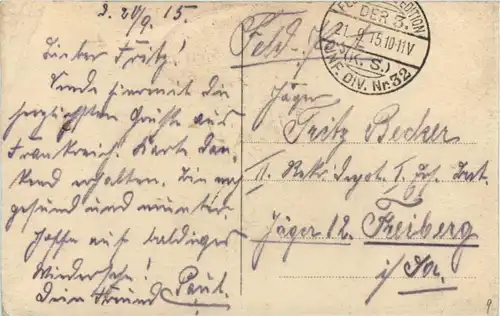 d. 20/9. 15.
Lieber Fritz!
Sende hiermit die
herzlichsten Grüße aus
Frankreich. Karte dan-
kend erhalten. Bin noch
gesund und munter.
Hoffe auf baldiges
Wiedersehn!
Dein Freund Paul.
Feld-
DER 3.
21.9.15.10-11V
(K.S.)
INF. DIV. Nr. 32
Jäger
Fritz Becker
II. Rekr. Depot. I. Ers. Bat.
Jäger 12. Freiberg
i/Sa.
9.